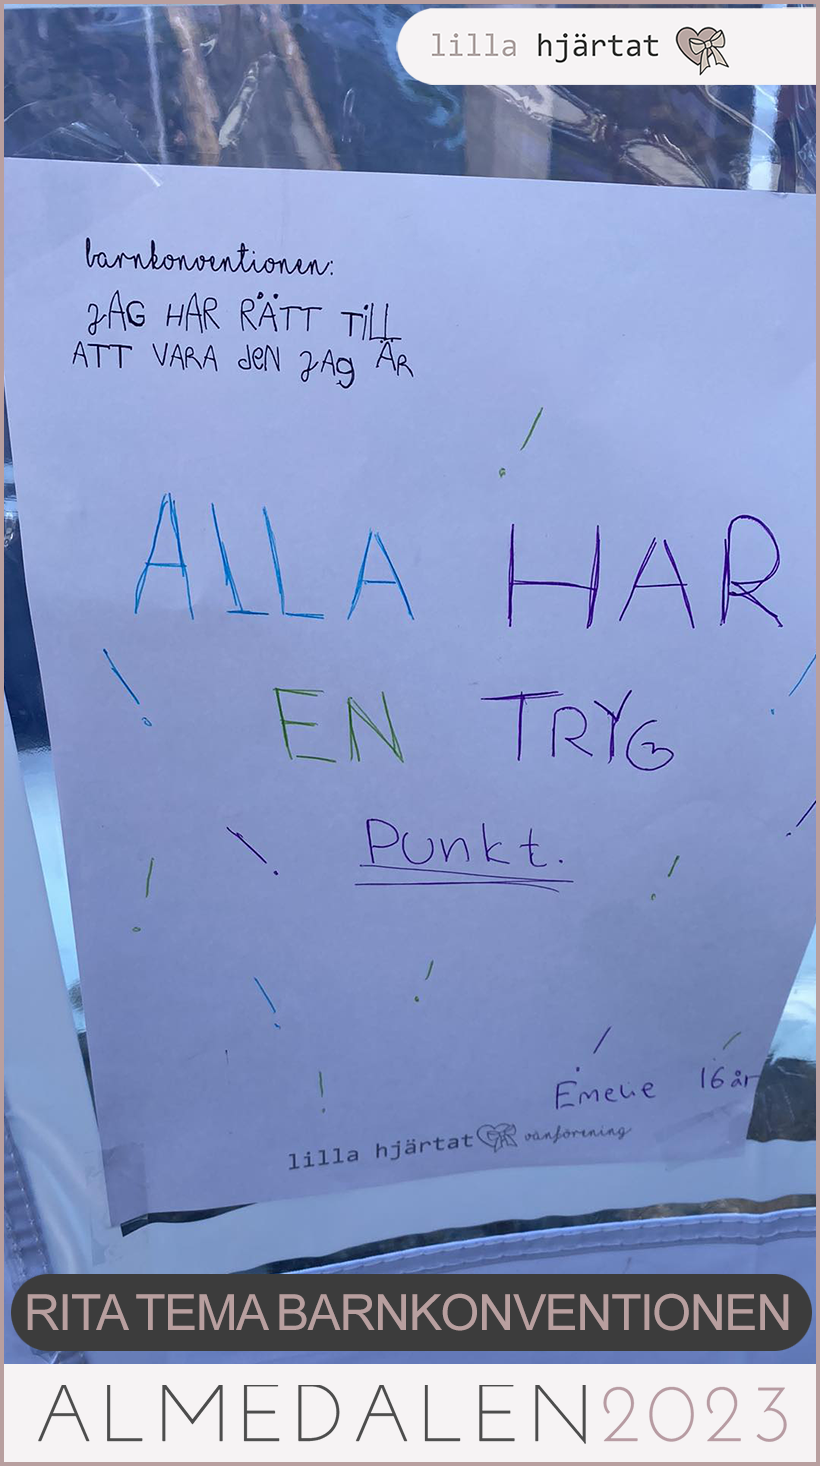 lilla hjärtat
barnkonventionen:
JAG HAR RÄTT TiLL
ATT VARA deN JAg ÄR
!
ALLA HAR
! !
EN TRYG
Punkt.
! ! ! !
! !
! ! !
Emelie 16 år
lilla hjärtat vänförening
RITA TEMA BARNKONVENTIONEN
ALMEDALEN2023